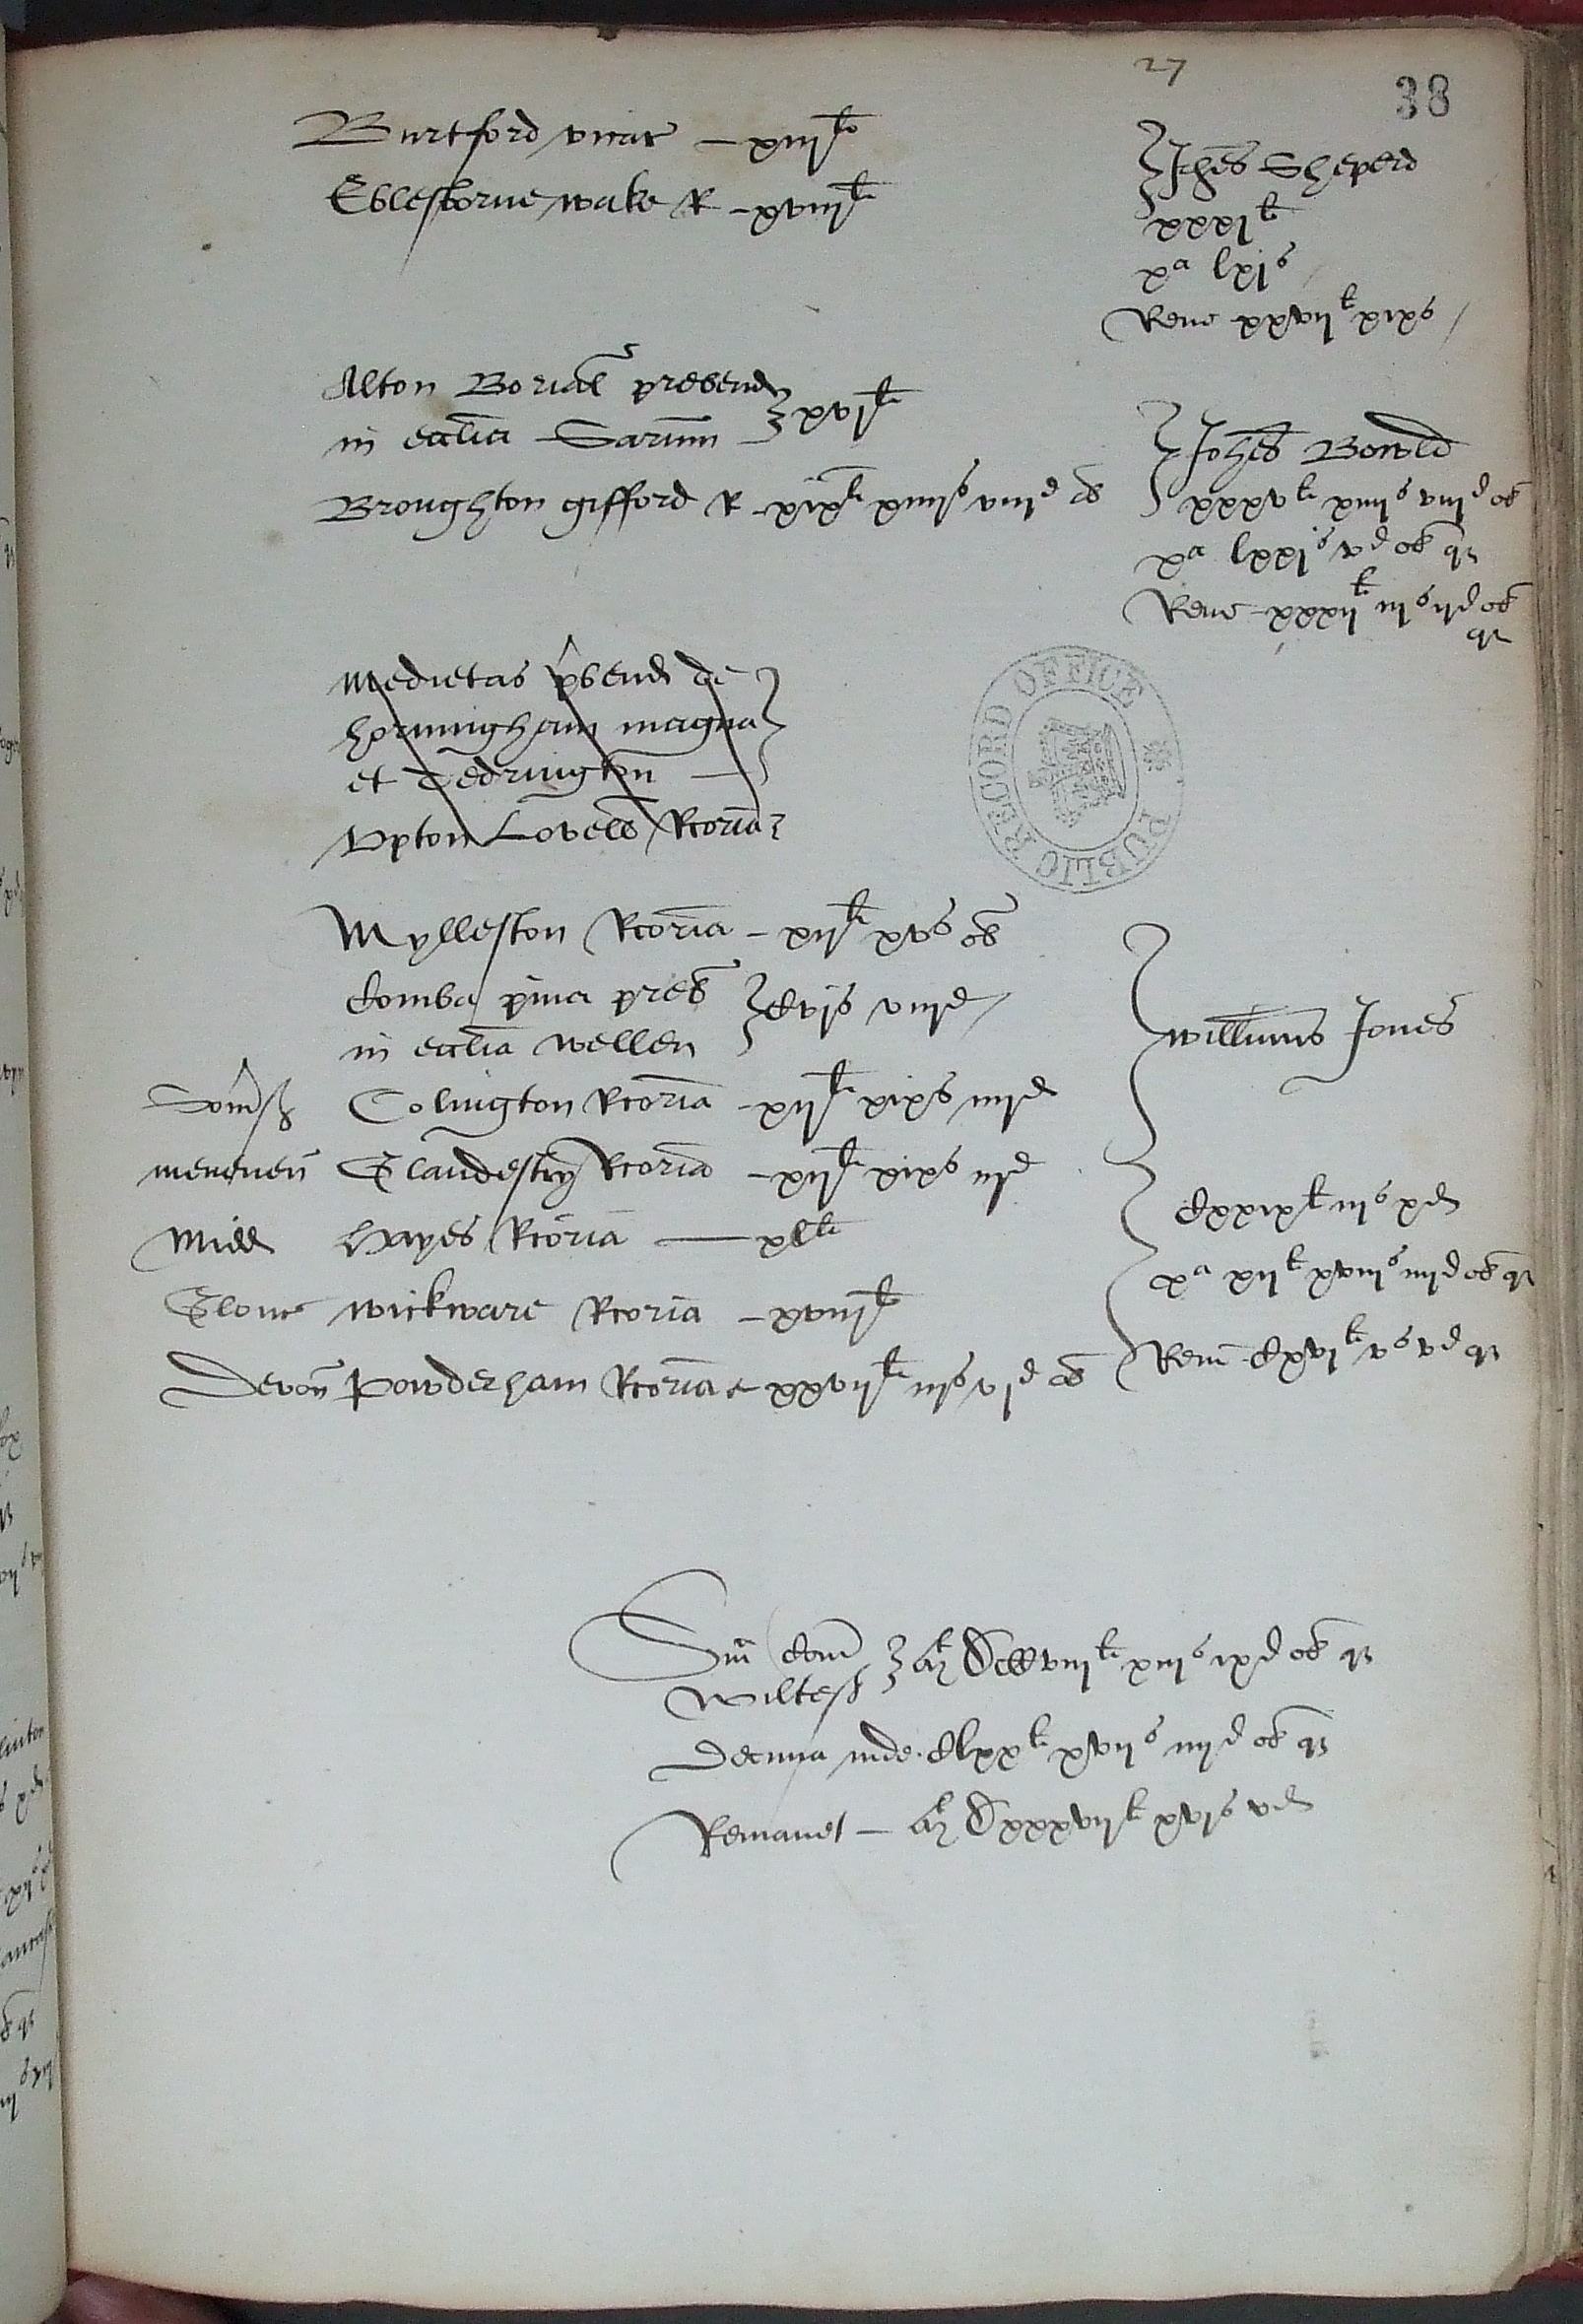 27
38
Burtford vicar – xiijli
Eblesborne wake R – xviijli
Johes Sheperd
xxxjli
xa lxijs
Rem xxvijli xixs
Alton Borial prebend
in ecclia Sarum
xvjli
Broughton gifford R – xixli xiiijs viijd ob
Johes Bowld
xxxvli xiiijs viijd ob
xa lxxjs vd ob qr
Rem xxxijli iijs ijd ob
qr
Medietas pbend de
horningham magna
et Tedrington
Upton Lovell Rcoria
Mylleston Rcoria – xijli xvs ob
Comba pma preb
in ecclia wellen
Cvjs viijd
Willmus Jones
Somst Colington Rcoria – xijli xixs iiijd
meneven Glandestry Rcoria – xijli xixs ijd
Midd Hayes Rcoria – xlli
Glouc wickware Rcoria – xviijli
Devon Powderham Rcoria – xxvijli iijs vjd ob
Cxxixli iijs xd
xa xijli xviijs iiijd ob qr
Rem Cxvjli vs vd qr
Sm Com
Wiltesh
xiijs ixd ob qr
Decima inde Clxxli xvijs iiijd ob qr
Remanet – xxxvijli xvjs vd
PUBLIC RECORD OFFICE